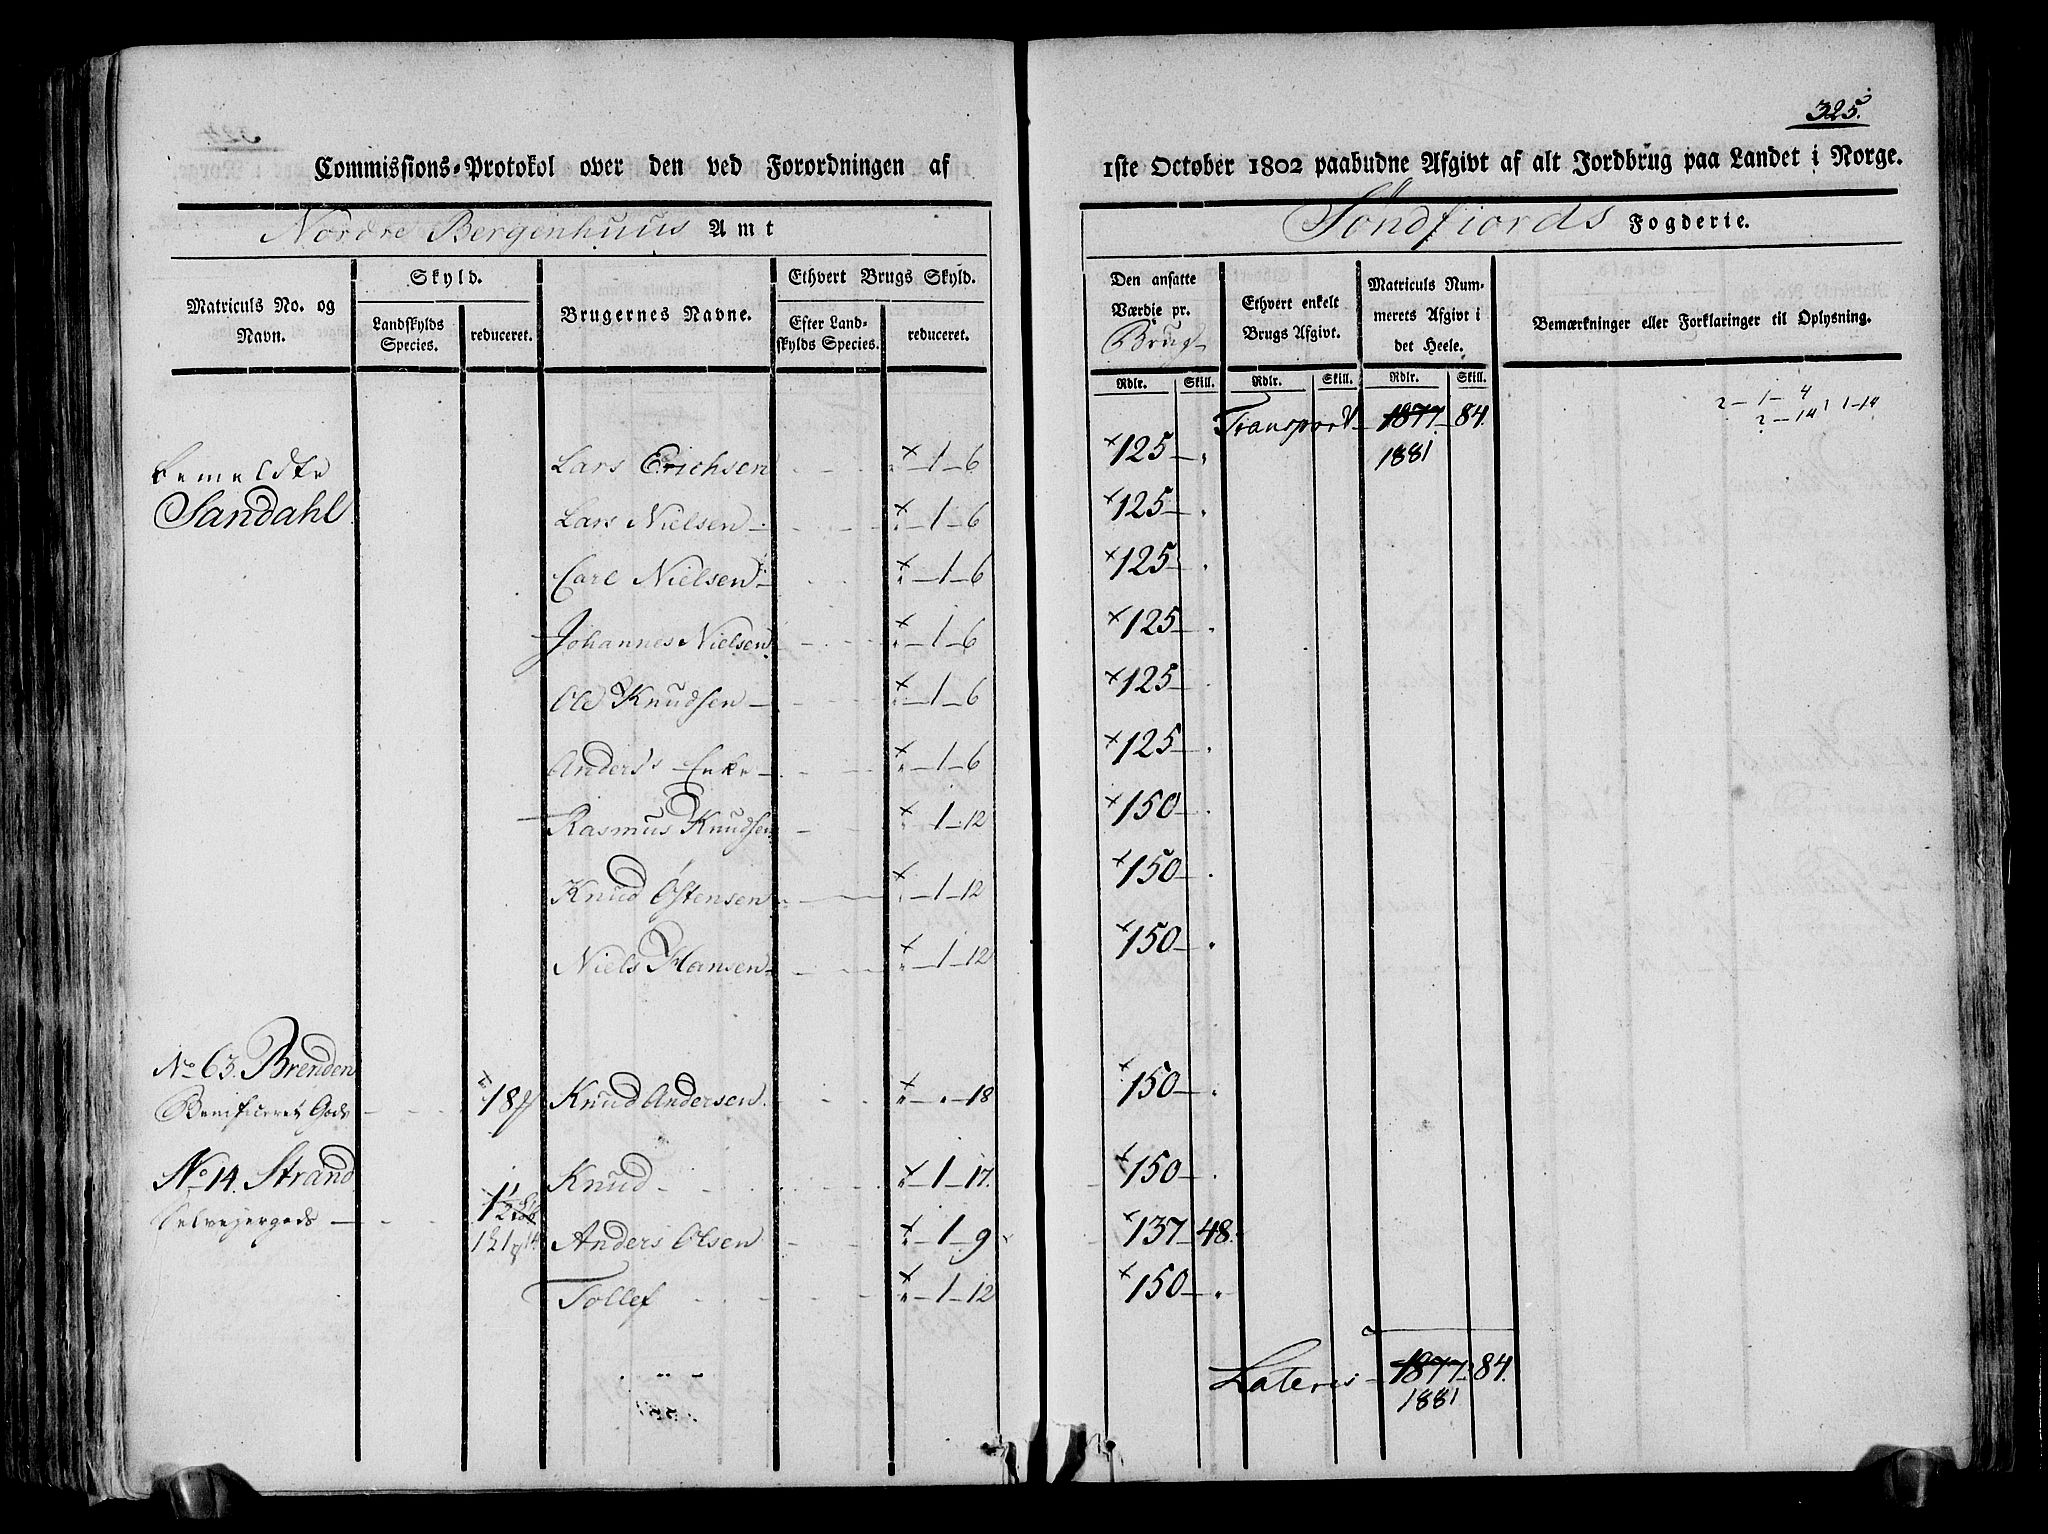 325.
Commissions-Protokol over den ved Forordningen af 1ste October 1802 paabudne Afgivt af alt Jordbrug paa Landet i Norge.
Nordre Bergenhuus Amt
Söndfiords Fogderie.
Matriculs No. og Navn.
Skyld.
Landskylds Species.
reduceret.
Brugernes Navne.
Ethvert Brugs Skyld.
Efter Landskylds Species.
reduceret.
Den ansatte Værdie pr. Brug
Rdlr. Skill.
Ethvert enkelt Brugs Afgivt.
Rdlr. Skill.
Matriculs Nummerets Afgivt i det Heele.
Rdlr. Skill.
Bemærkninger eller Forklaringer til Oplysning.
Transport 1877 84.
1881
2 - 1 - 4
2 - 14 1 - 14
bemeldte
Sandahl
Lars Erichsen 1 - 6 125
Lars Nielsen 1 - 6 125
Carl Nielsen 1 - 6 125
Johannes Nielsen 1 - 6 125
Ole Knudsen 1 - 6 125
Anders's Enke 1 - 6 125
Rasmus Knudsen 1 - 12 150
Knud Östensen 1 - 12 150
Niels Hansen 1 - 12 150
No 63. Brenden
Benificeret Gods 18 Knud Andersen 18 150
No 14. Strand
Selvejergods
Knud 1 - 17. 150
Anders Olsen 1 - 9 137 48.
Tollef 1 - 12 150
Lateris 1877 84.
1881